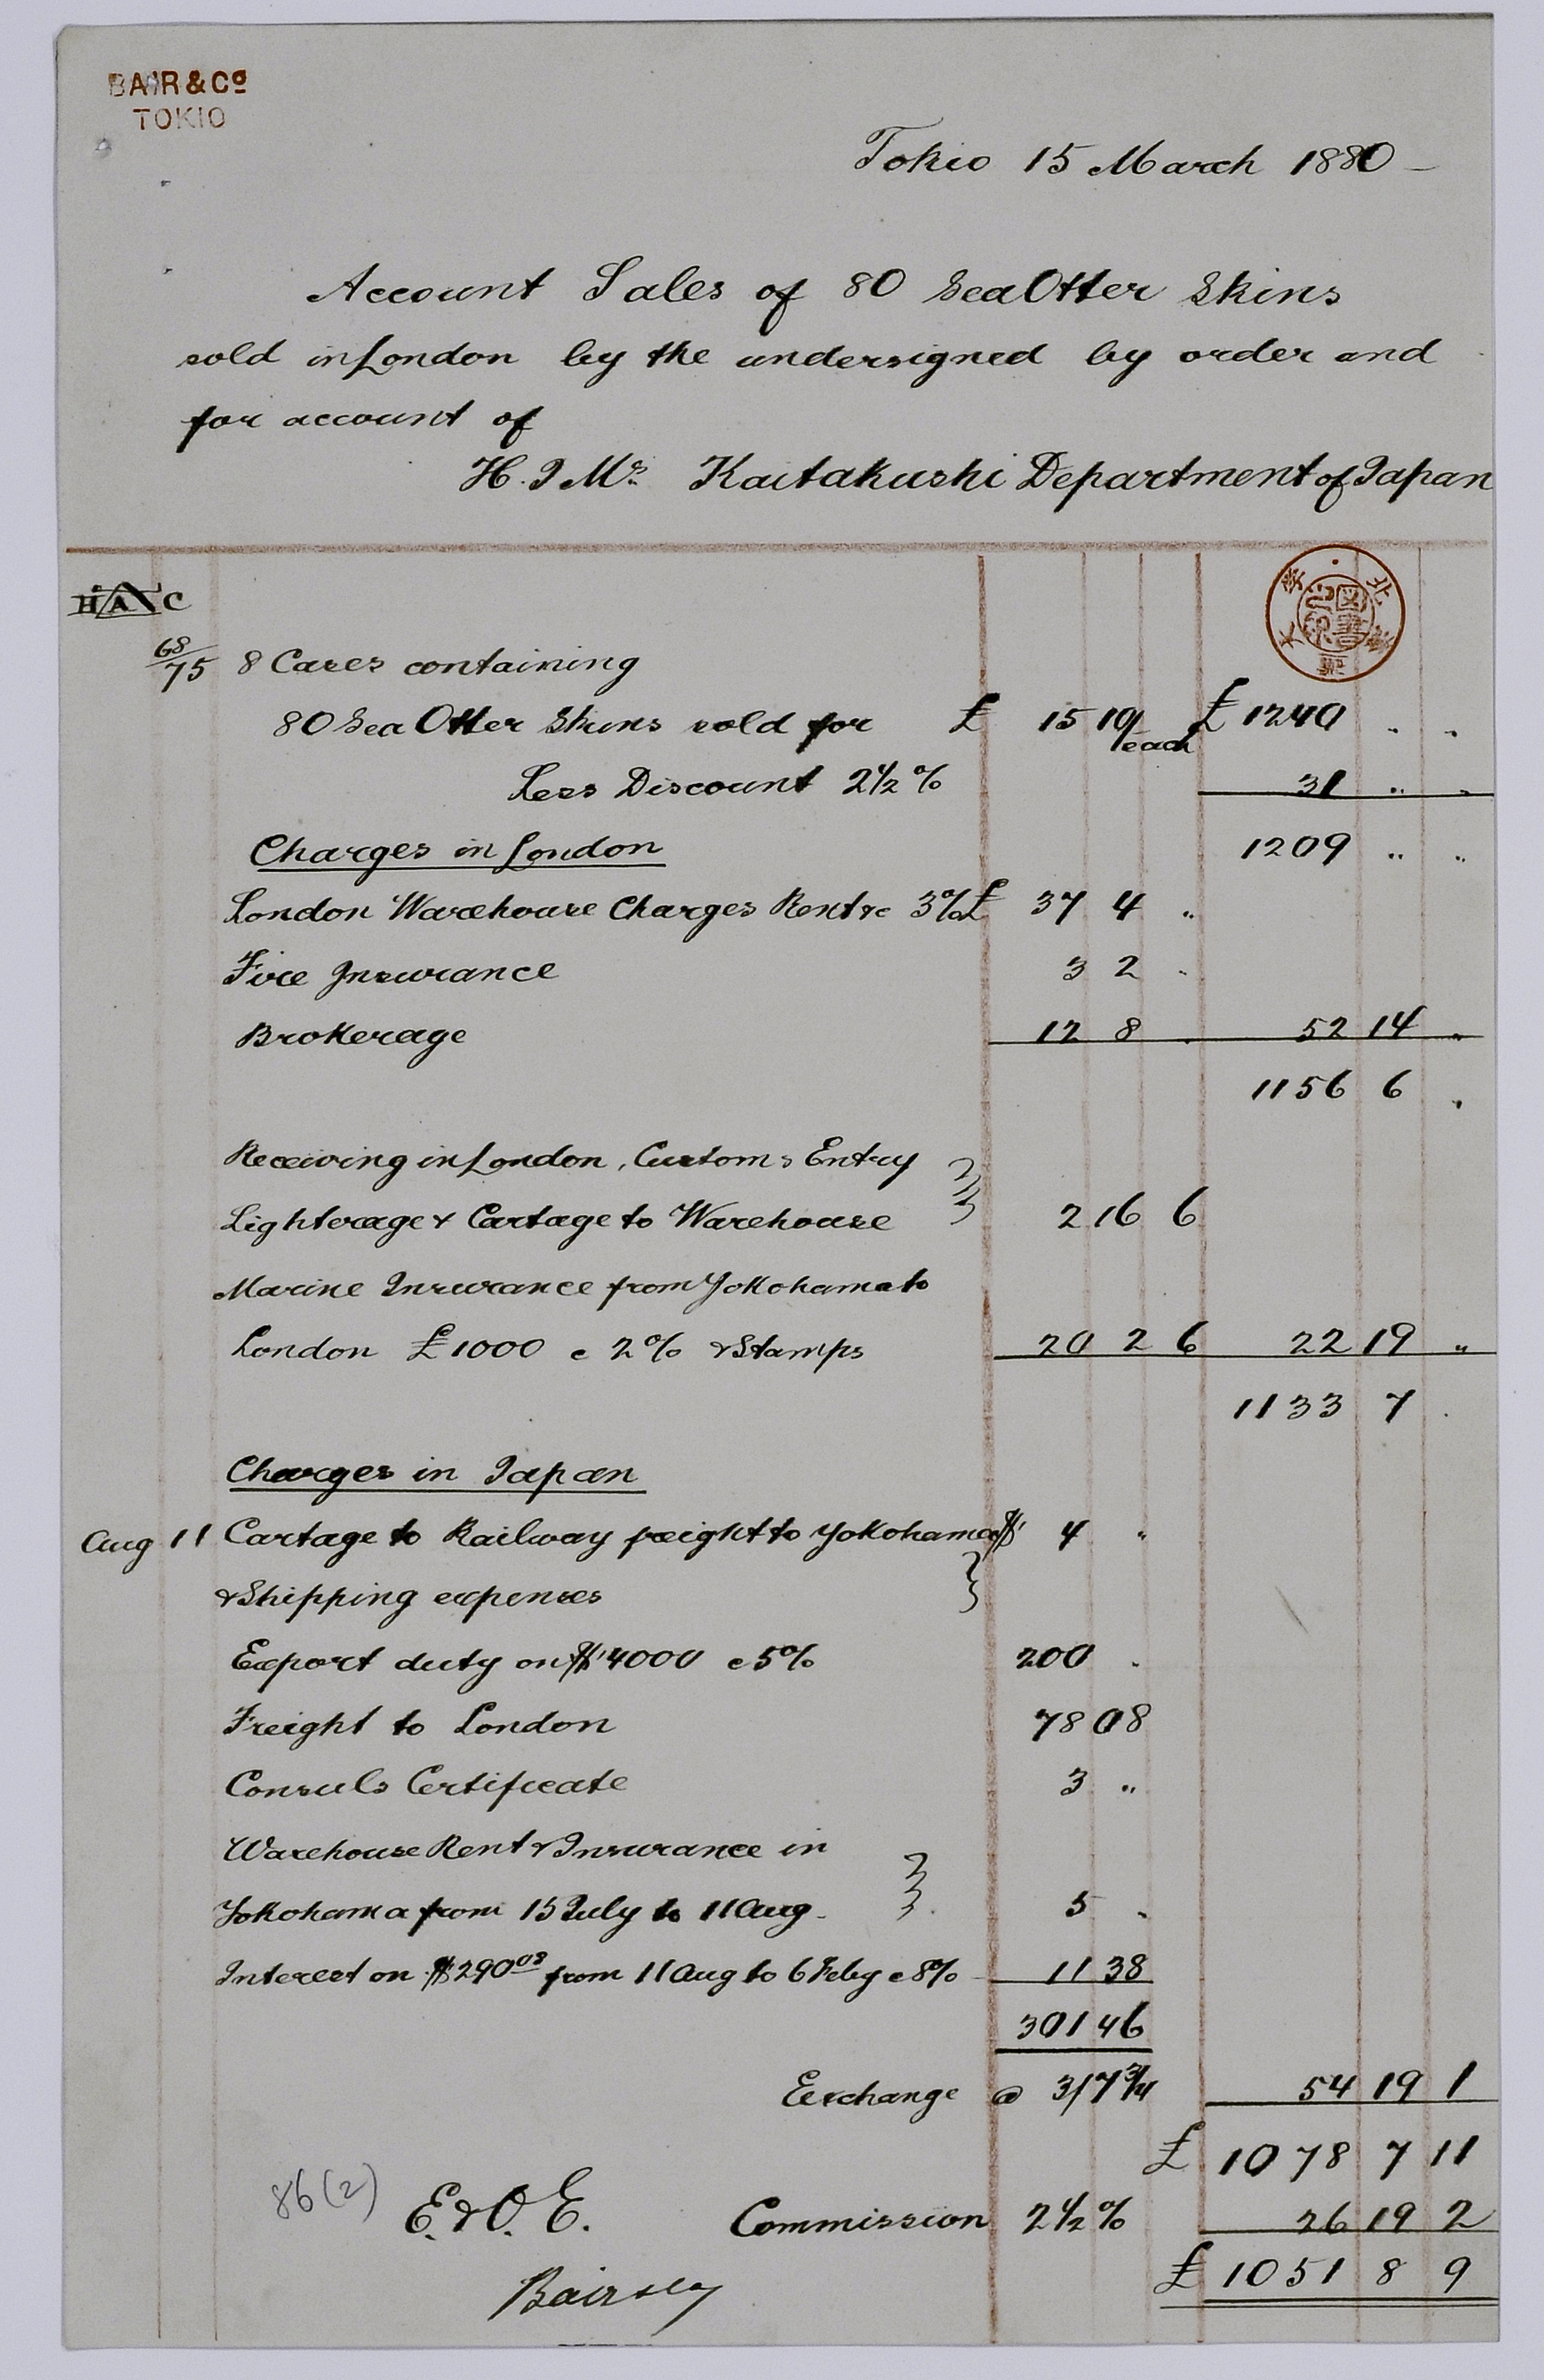 BAIR & Co
TOKIO
Tokio 15 March 1880 –
Account Sales of 80 Sea Otter Skins
sold in London by the undersigned by order and
for account of
H. I Ms. Kaitakushi Department of Japan
H A C
68/75 8 Cases containing
80 Sea Otter Skins sold for £ 15 10/ each £ 1240 " "
Less Discount 2½ % 31 " "
Charges in London 1209 " "
London Warehouse Charges Rent &c 3% £ 37 4 "
Fire Insurance 3 2 "
Brokerage 12 8 " 52 14 "
1156 6 "
Receiving in London, Customs Entry
Lighterage & Cartage to Warehouse 2 16 6
Marine Insurance from Yokohama to
London £1000 @ 2% & Stamps 20 2 6 22 19 "
1133 7 "
Charges in Japan
Aug 11 Cartage to Railway freight to Yokohama $ 4 "
& Shipping expenses
Export duty on $4000 @ 5% 200 "
Freight to London 78 08
Consuls Certificate 3 "
Warehouse Rent & Insurance in
Yokohama from 15 July to 11 Aug. 5 "
Interest on $290 08 from 11 Aug to 6 Feby @ 8% 11 38
301 46
Exchange @ 3/7¾ 54 19 1
£ 1078 7 11
86(2) E. & O. E. Commission 2½ % 26 19 2
£ 1051 8 9
Bair & Co